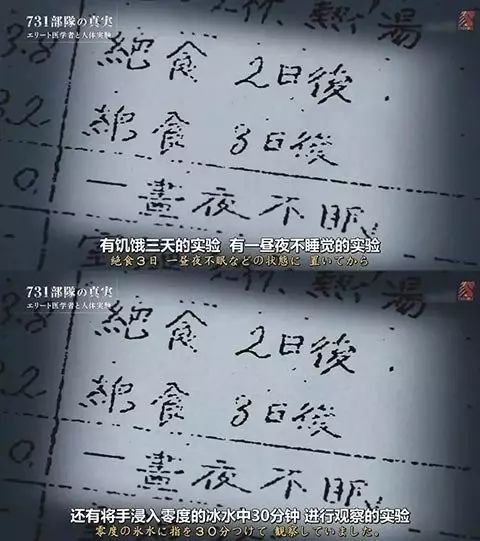 731部隊の真実
エリート医学者と人体実験
熱湯
3.8 絶食 2日後.
3.2 絶食 3日後
0. 一晝夜不眠
有饥饿三天的实验 有一昼夜不睡觉的实验
絶食3日 一昼夜不眠などの状態に 置いてから
731部隊の真実
エリート医学者と人体実験
熱湯
3.8 絶食 2日後.
3.2 絶食 3日後
0. 一晝夜不眠
还有将手浸入零度的冰水中30分钟 进行观察的实验
零度の氷水に指を30分つけて 観察していました。